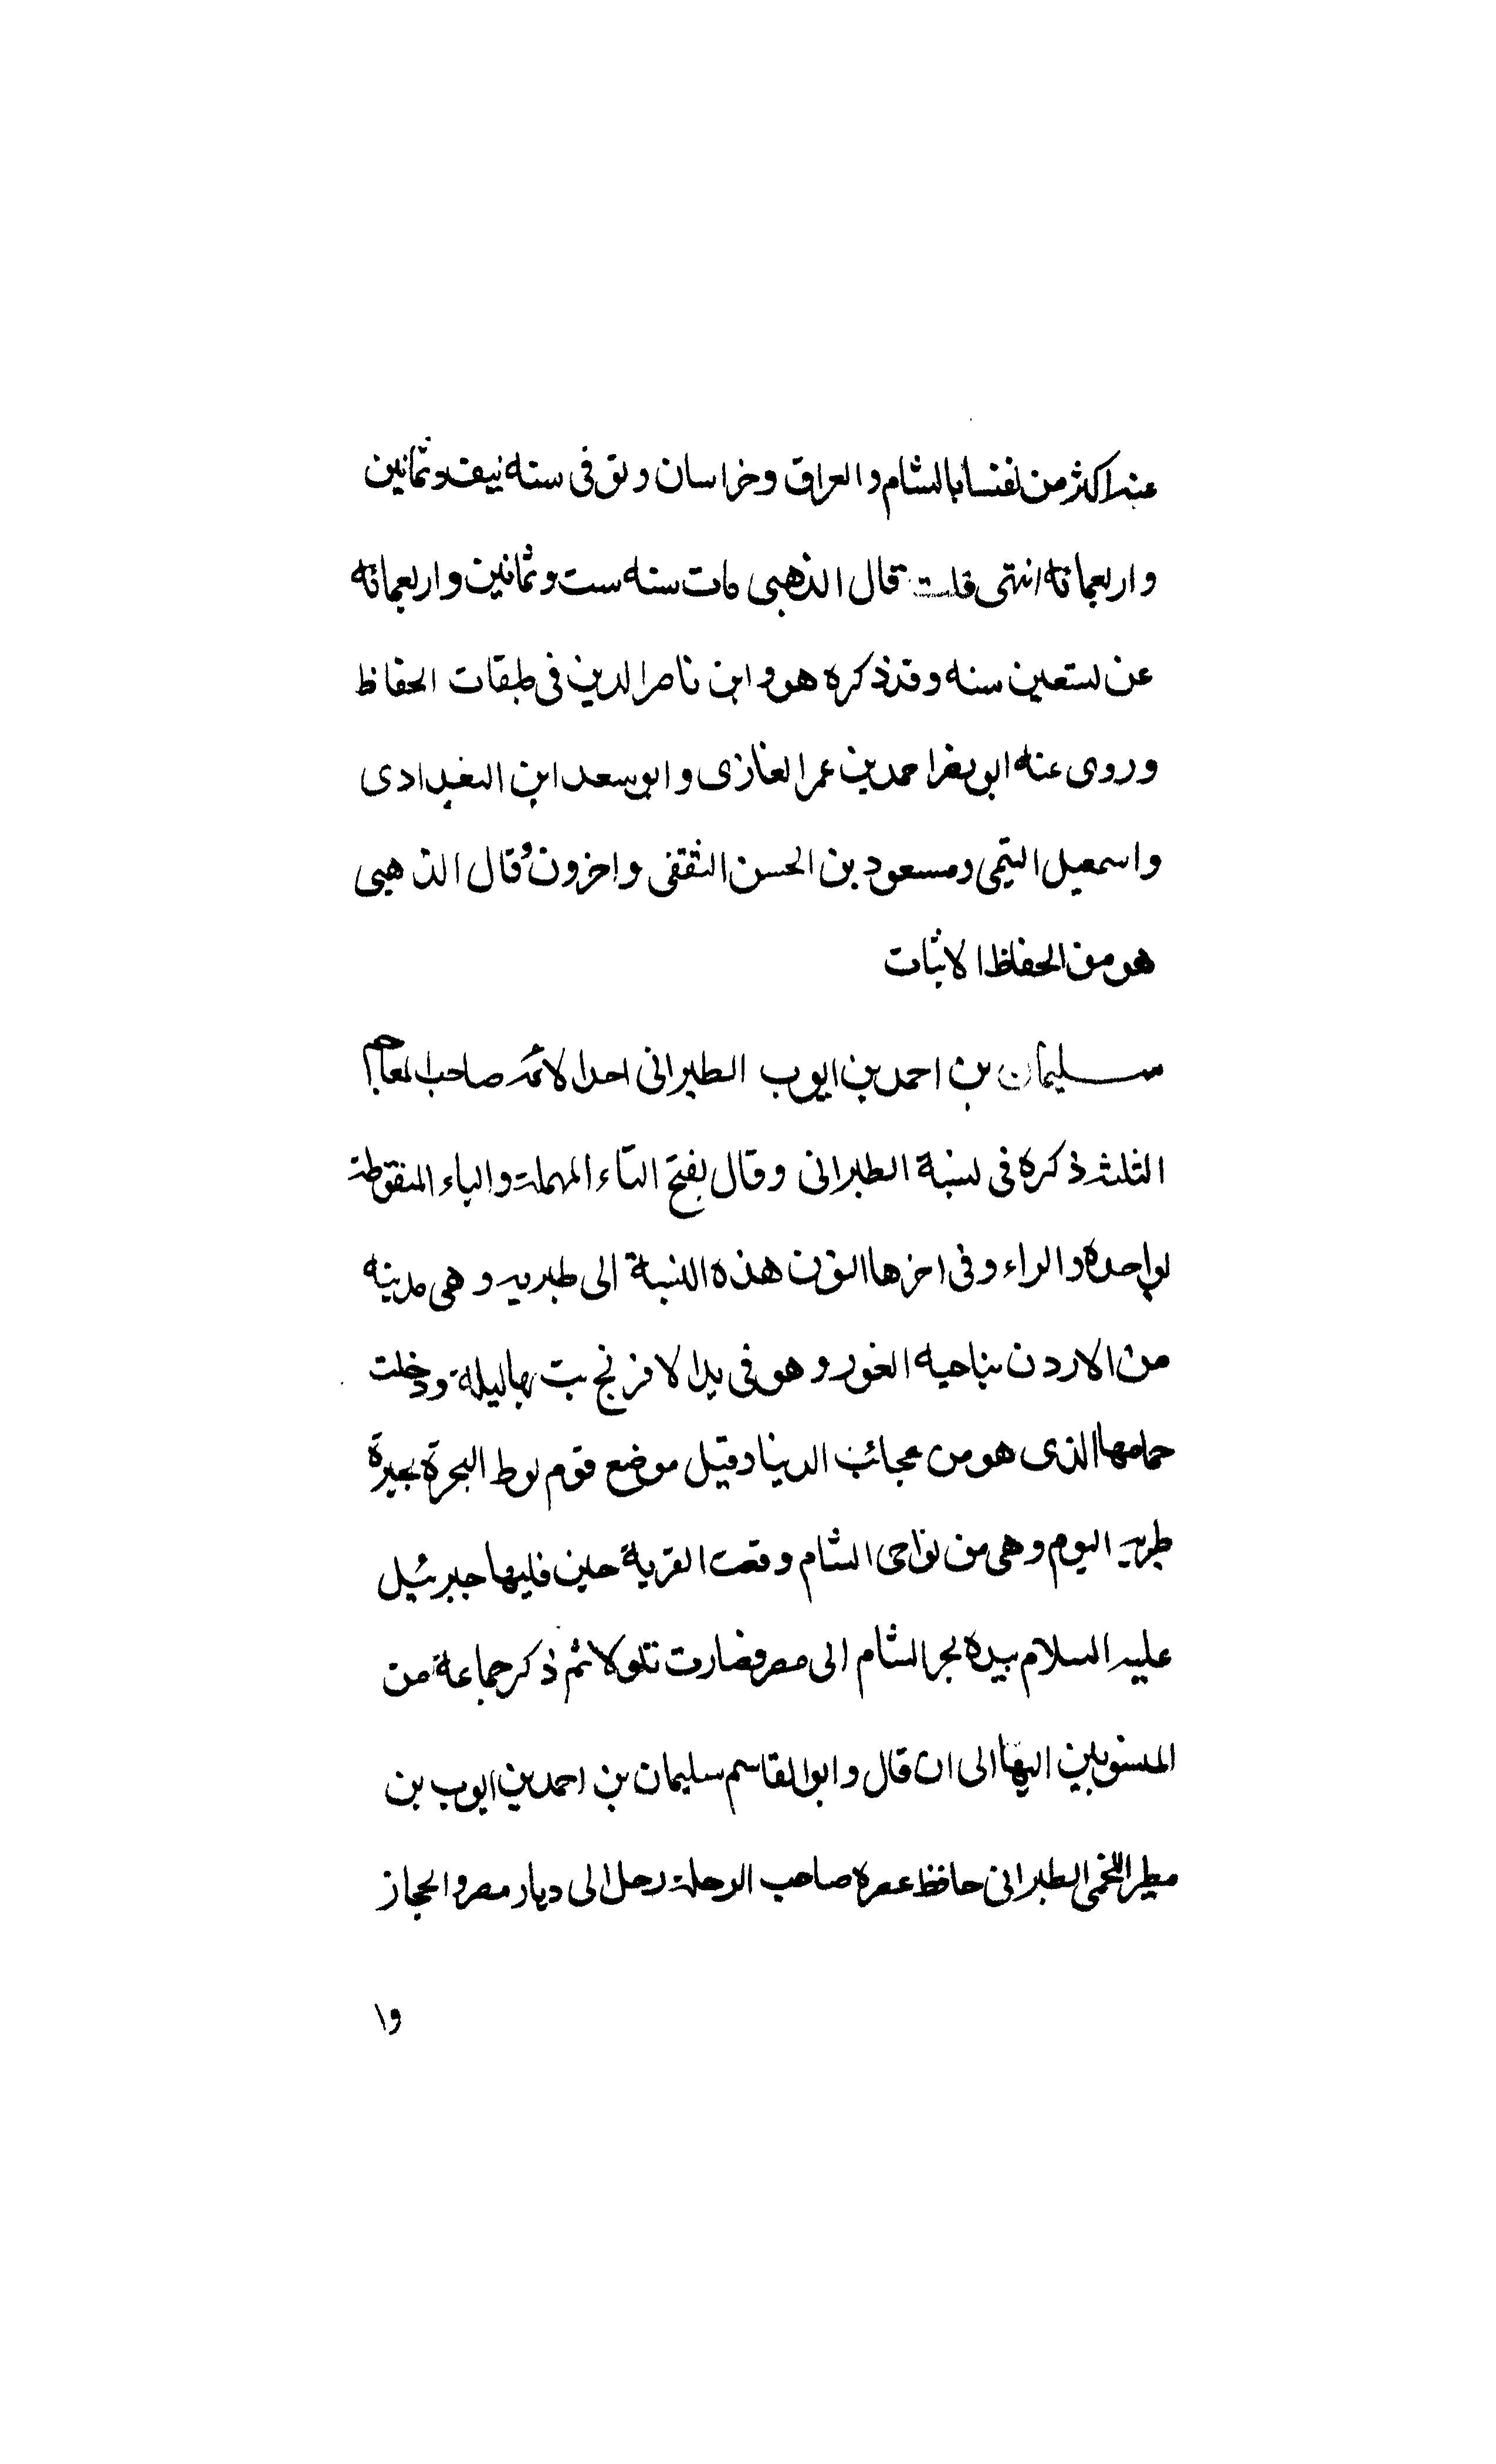 عنه اكثر من نفسا بالشام والعراق وخراسان وتوفى سنه نيف وثمانين
واربعمائه انتهى قلت قال الذهبى مات سنه ست وثمانين واربعمائه
عن تسعين سنه وقد ذكره هو وابن ناصر الدين فى طبقات الحفاظ
وروى عنه ابو نصر احمد بن عمر الغازى وابو سعد ابن البغدادى
واسمعيل التيمى ومسعود بن الحسن الثقفى واخرون وقال الذهبى
هو من الحفاظ الاثبات
سليمان بن احمد بن ايوب الطبرانى احد الائمه صاحب المعاجم
الثلثه ذكره فى نسبة الطبرانى وقال بفتح التاء المهملة والباء المنقوطة
بواحدة والراء وفى اخرها النون هذه النسبة الى طبريه وهى مدينه
من الاردن بناحيه الغور وهو فى يد الافرنج بت بها ليلة ودخلت
حمامها الذى هو من عجائب الدنيا وقيل موضع قوم لوط البحرة بحيرة
طبريه اليوم وهى من نواحى الشام وقعت القرية حين قلبها جبرئيل
عليه السلام بيده بحر الشام الى مصر فصارت تلولا ثم ذكر جماعة من
المنسوبين اليها الى ان قال وابو القاسم سليمان بن احمد بن ايوب بن
مطير اللخمى الطبرانى حافظ عصره صاحب الرحلة رحل الى ديار مصر والحجاز
وا